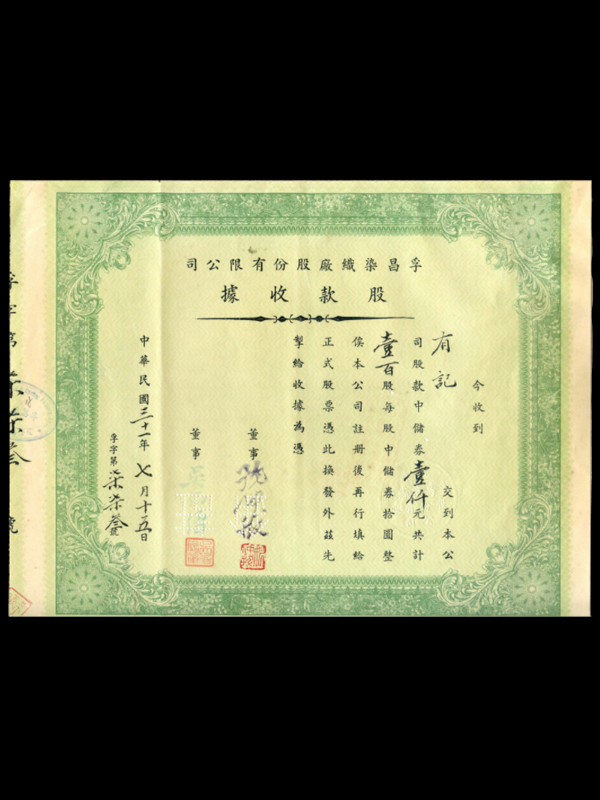 孚昌染織廠股份有限公司
股款收據
今收到
有記
交到本公
司股款中儲券壹仟元共計
壹百股每股中儲券拾圓整
俟本公司註册後再行填給
正式股票憑此換發外茲先
掣給收據為憑
董事
董事
中華民國三十一年七月十五日
孚字第柒柒叁號
孚字第柒柒叁號